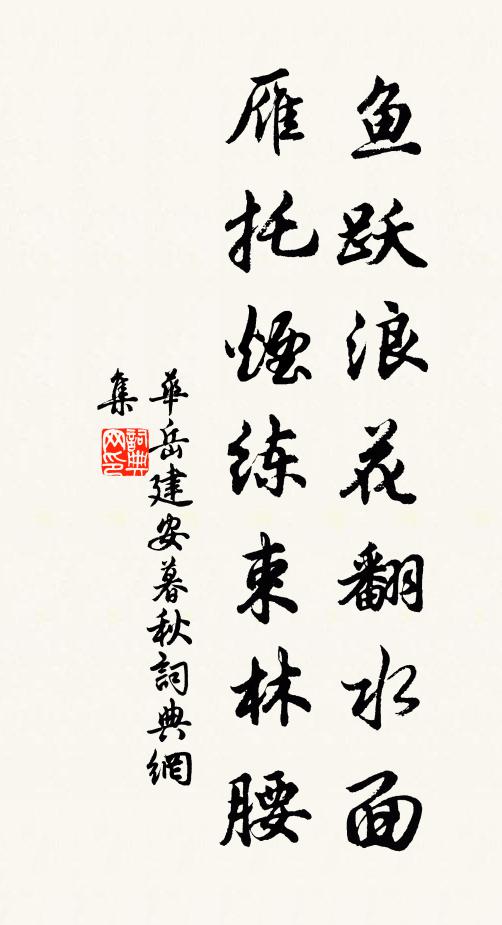 鱼跃浪花翻水面
雁托煙练束林腰
華岳建安暮秋詞典網
集
詞典
网印